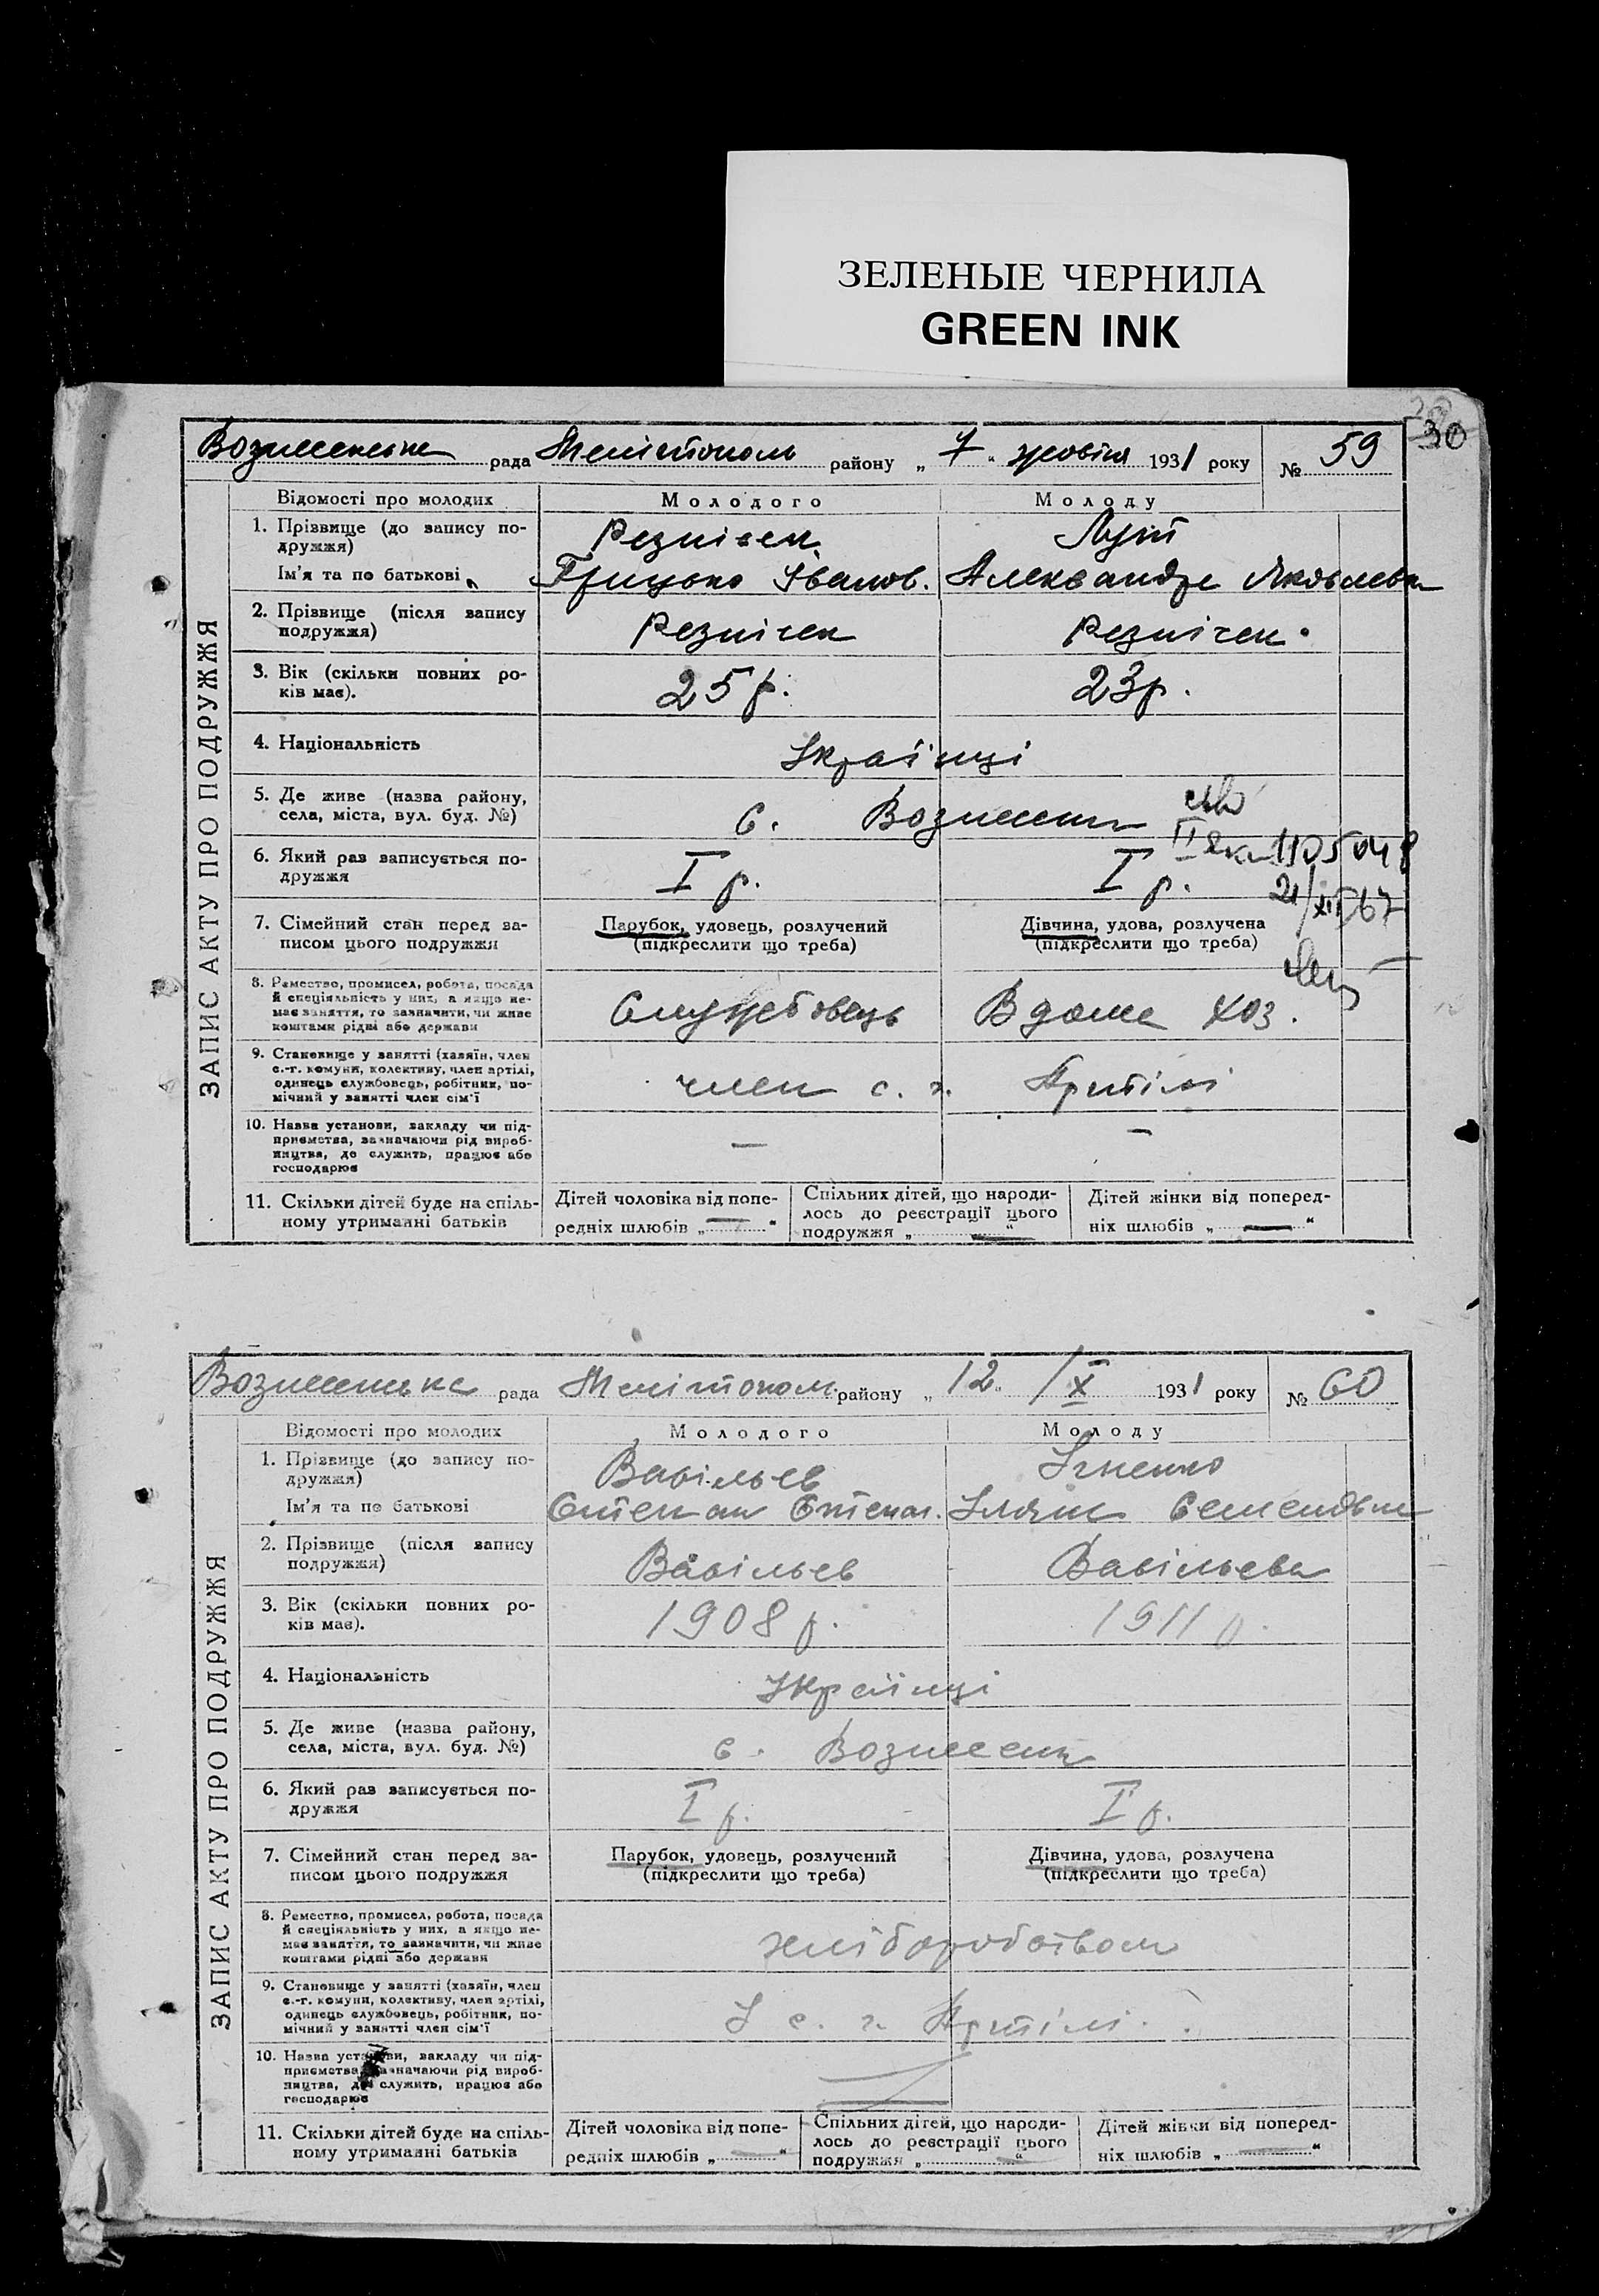 ЗЕЛЕНЫЕ ЧЕРНИЛА
GREEN INK
30
Вознесенська рада Мелітополь району „ 7 “ жовтня 1931 року № 59
ЗАПИС АКТУ ПРО ПОДРУЖЖЯ
Відомості про молодих Молодого Молоду
1. Прізвище (до запису по-
дружжя) Резнічен Луït
Ім'я та по батькові Грицько Іванов. Александра Яковлевна
2. Прізвище (після запису
подружжя) Резнічен Резнічен.
3. Вік (скільки повних ро-
ків має). 25 р. 23 р.
4. Національність Українці
5. Де живе (назва району,
села, міста, вул. буд. №) с. Вознесенка
6. Який раз записується по-
дружжя I р. I р.
II 1105048
21/XII 67
7. Сімейний стан перед за-
писом цього подружжя
Парубок, удовець, розлучений
(підкреслити що треба)
Дівчина, удова, розлучена
(підкреслити що треба)
8. Ремество, промисел, робота, посада
й спеціяльність у них, а якщо не-
має заняття, то зазначити, чи живе
коштами рідні або держави
Службовець В доме хоз.
9. Становище у занятті (хазяїн, член
с.-г. комуни, колективу, член артілі,
одинець службовець, робітник, по-
мічний у занятті член сім'ї
член с. г. Артілі
10. Назва установи, закладу чи під-
приємства, зазначаючи рід вироб-
ництва, де служить, працює або
господарює
— —
11. Скільки дітей буде на спіль-
ному утриманні батьків
Дітей чоловіка від попе-
редніх шлюбів „ — “
Спільних дітей, що народи-
лось до реєстрації цього
подружжя „ — “
Дітей жінки від поперед-
ніх шлюбів „ — “
Вознесенська рада Мелітопол. району „ 12 “ /X 1931 року № 60
ЗАПИС АКТУ ПРО ПОДРУЖЖЯ
Відомості про молодих Молодого Молоду
1. Прізвище (до запису по-
дружжя) Васільев
Ім'я та по батькові Степан Степан. Семеновна
2. Прізвище (після запису
подружжя) Васільев Васільева
3. Вік (скільки повних ро-
ків має). 1908 р. 1911 р.
4. Національність Українці
5. Де живе (назва району,
села, міста, вул. буд. №) с. Вознесенк
6. Який раз записується по-
дружжя I р. I р.
7. Сімейний стан перед за-
писом цього подружжя
Парубок, удовець, розлучений
(підкреслити що треба)
Дівчина, удова, розлучена
(підкреслити що треба)
8. Ремество, промисел, робота, посада
й спеціяльність у них, а якщо не-
має заняття, то зазначити, чи живе
коштами рідні або держави
хліборобством
9. Становище у занятті (хазяїн, член
с.-г. комуни, колективу, член артілі,
одинець службовець, робітник, по-
мічний у занятті член сім'ї
У с. г. Артілі.
10. Назва установи, закладу чи під-
приємства, зазначаючи рід вироб-
ництва, де служить, працює або
господарює
11. Скільки дітей буде на спіль-
ному утриманні батьків
Дітей чоловіка від попе-
редніх шлюбів „ — “
Спільних дітей, що народи-
лось до реєстрації цього
подружжя „ — “
Дітей жінки від поперед-
ніх шлюбів „ — “